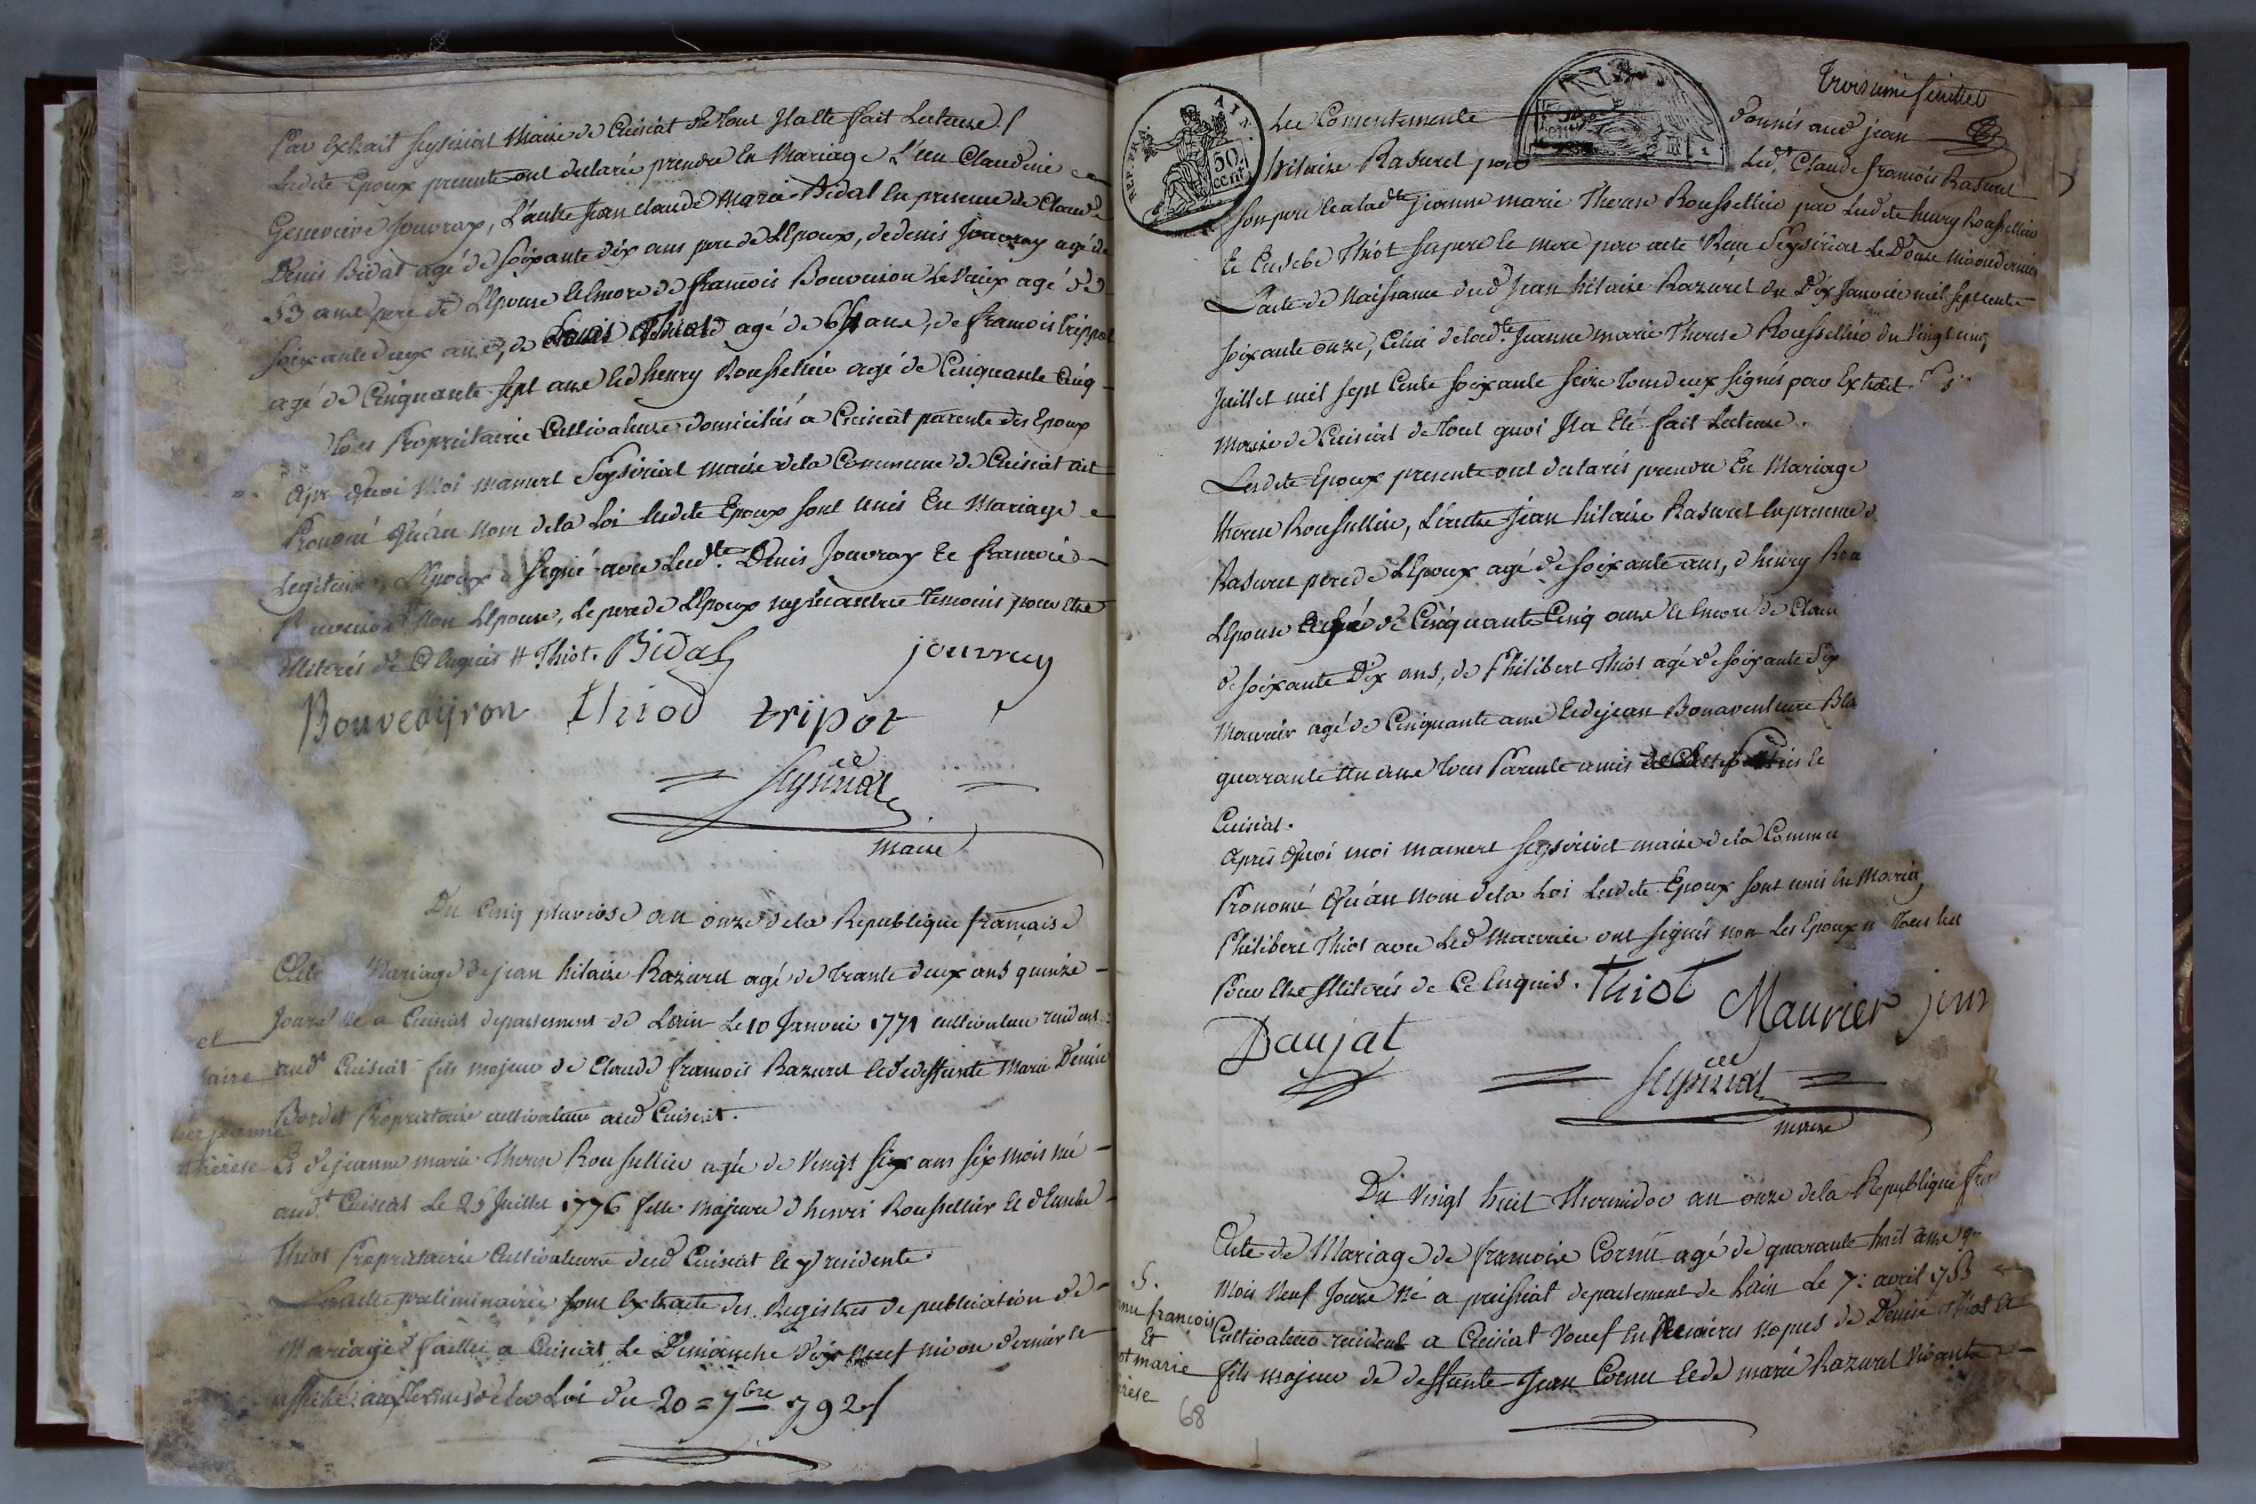 Par Extrait Seysiriat Maire de Cuisiat de tout Il a été fait Lecture /
Lesdits Epoux presents ont déclaré prendre En Mariage L'un Claudine
Genevieve Jouvray, L'autre Jean Claude Marie Bidal En presence de Claude
Denis Bidal agé de Soixante dix ans pere de L'Epoux, de denis Jouvray agé de
53 ans pere de L'Epouse Et Encore de françois Bouveiron Le Vieux agé de
soixante deux ans, de Thiot agé de 64 ans, de françois trippot
agé de Cinquante Sept ans et d henry Roussellier agé de Cinquante Cinq
tous Proprietaires Cultivateurs domiciliés a Cuisiat parents des Epoux
Après Quoi Moi mamert Seysiriat maire de la Commune de Cuisiat ait
Prononcé Qu'au Nom de la Loi lesdits Epoux sont unis En Mariage
Legitime, L'Epoux a Signé avec Lesdts Denis Jouvray Et françois
Bouveiron Non L'Epouse, Le pere de L'Epoux ny les autres temoins pour Etre
Illiterés de Ce Enquis # Thiot. Bidal jouvray
Bouveyron thiod tripot
Seysiriat
Maire
Du Cinq pluviose an onze de la Republique française
Acte Mariage de jean hilaire Razurel agé de trante deux ans quinze
Jours né a Cuisiat departement de L'ain Le 10 Janvier 1771 cultivateur resident
aud Cuisiat fils majeur de Claude françois Razurel et de deffunte Marie Denise
Bordet Proprietaire cultivateur aud Cuisiat.
Et de jeanne marie Therese Roussellier agée de Vingt Six ans Six mois née
audt Cuisiat Le 25 Juillet 1776 fille Majeure d henri Roussellier Et d Eusebe
Thiot Proprietaires Cultivateurs dud Cuisiat et y residents.
Les actes preliminaires sont Extraits des Registres de publication de
Mariages faittes a Cuisiat Le Dimanche dix neuf nivose dernier et
affiché aux termes de la Loi du 20 = 7bre 1792 /
et
laire
jeanne
thérese
Troisieme feuillet
REP. FRA. AIN. 50 cent.
Les Consentements donnés aud jean
hilaire Rasurel par Ledt Claude françois Rasurel
son pere Et a ladte jeanne marie Therese Roussellier par Lesdts henry Roussellier
Et Eusebe Thiot ses pere et mere par acte Reçu Seysiriat Le Douze nivose dernier
L'acte de Naissance dud Jean hilaire Razurel du Dix Janvier mil sept cents
soixante onze, Celui de lad.te Jeanne marie Therese Roussellier du Vingt cinq
Juillet mil sept Cents soixante seize tous deux signés par Extrait
Maire de Cuisiat de tout quoi Il a Eté fait Lecture.
Lesdits Epoux presents ont declarés prendre En Mariage
Therese Roussellier, L'autre Jean hilaire Rasurel En presence d
Rasurel pere de L'Epoux agé de soixante ans, d henry Rou
L'Epouse agé de Cinquante Cinq ans et Encore de Clau
de soixante Dix ans, de Philibert Thiot agé de soixante Six
Maurier agé de Cinquante ans et de jean Bonaventure Bla
quarante Un ans tous Parents amis
Cuisiat.
Après Quoi moi mamert Seysiriat maire de la Commu
Prononcé Qu'au Nom de la Loi Lesdits Epoux sont unis En Mariag
Philibert Thiot avec Led Maurier ont signés non Les Epoux n
Pour Etre Illiterés de Ce Enquis. Thiot Maurier jou
Daujat
Seysiriat
maire
Du Vingt huit Thermidor an onze de la Republique fra
Acte de Mariage de françois Cornu agé de quarante huit ans
Mois Neuf Jours Né a preissiat departement de L'ain Le 7: avril 1755
Cultivateur resident a Cuisiat Veuf En Premieres nopces de Denise Thiot Et
fils majeur de deffunte Jean Cornu Et de marie Razurel Vivante
5.
rnu françois
Et
ot marie
rèse
68